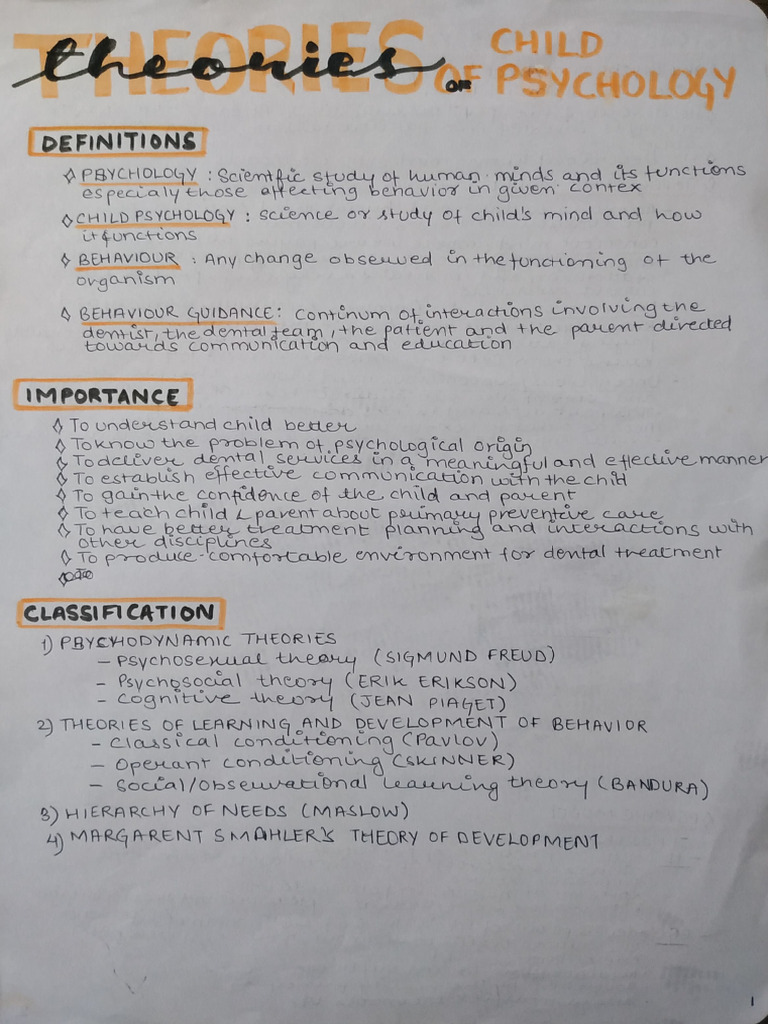 THEORIES theories OF of CHILD PSYCHOLOGY
DEFINITIONS
PSYCHOLOGY : Scientific study of human minds and its functions
especialy those affecting behavior in given contex
CHILD PSYCHOLOGY : science or study of child's mind and how
it functions
BEHAVIOUR : Any change observed in the functioning of the
organism
BEHAVIOUR GUIDANCE: continum of interactions involving the
dentist, the dental team, the patient and the parent directed
towards communication and education
IMPORTANCE
To understand child better
To know the problem of psychological origin
To deliver dental services in a meaningful and effective manner
To establish effective communication with the child
To gain the confidence of the child and parent
To teach child & parent about primary preventive care
To have better treatment planning and interactions with
other disciplines
To produce comfortable environment for dental treatment
CLASSIFICATION
1) PSYCHODYNAMIC THEORIES
– Psychosexual theory (SIGMUND FREUD)
– Psychosocial theory (ERIK ERIKSON)
– Cognitive theory (JEAN PIAGET)
2) THEORIES OF LEARNING AND DEVELOPMENT OF BEHAVIOR
– Classical conditioning (Pavlov)
– Operant conditioning (SKINNER)
– Social/Observational learning theory (BANDURA)
3) HIERARCHY OF NEEDS (MASLOW)
4) MARGARENT S MAHLER'S THEORY OF DEVELOPMENT
1